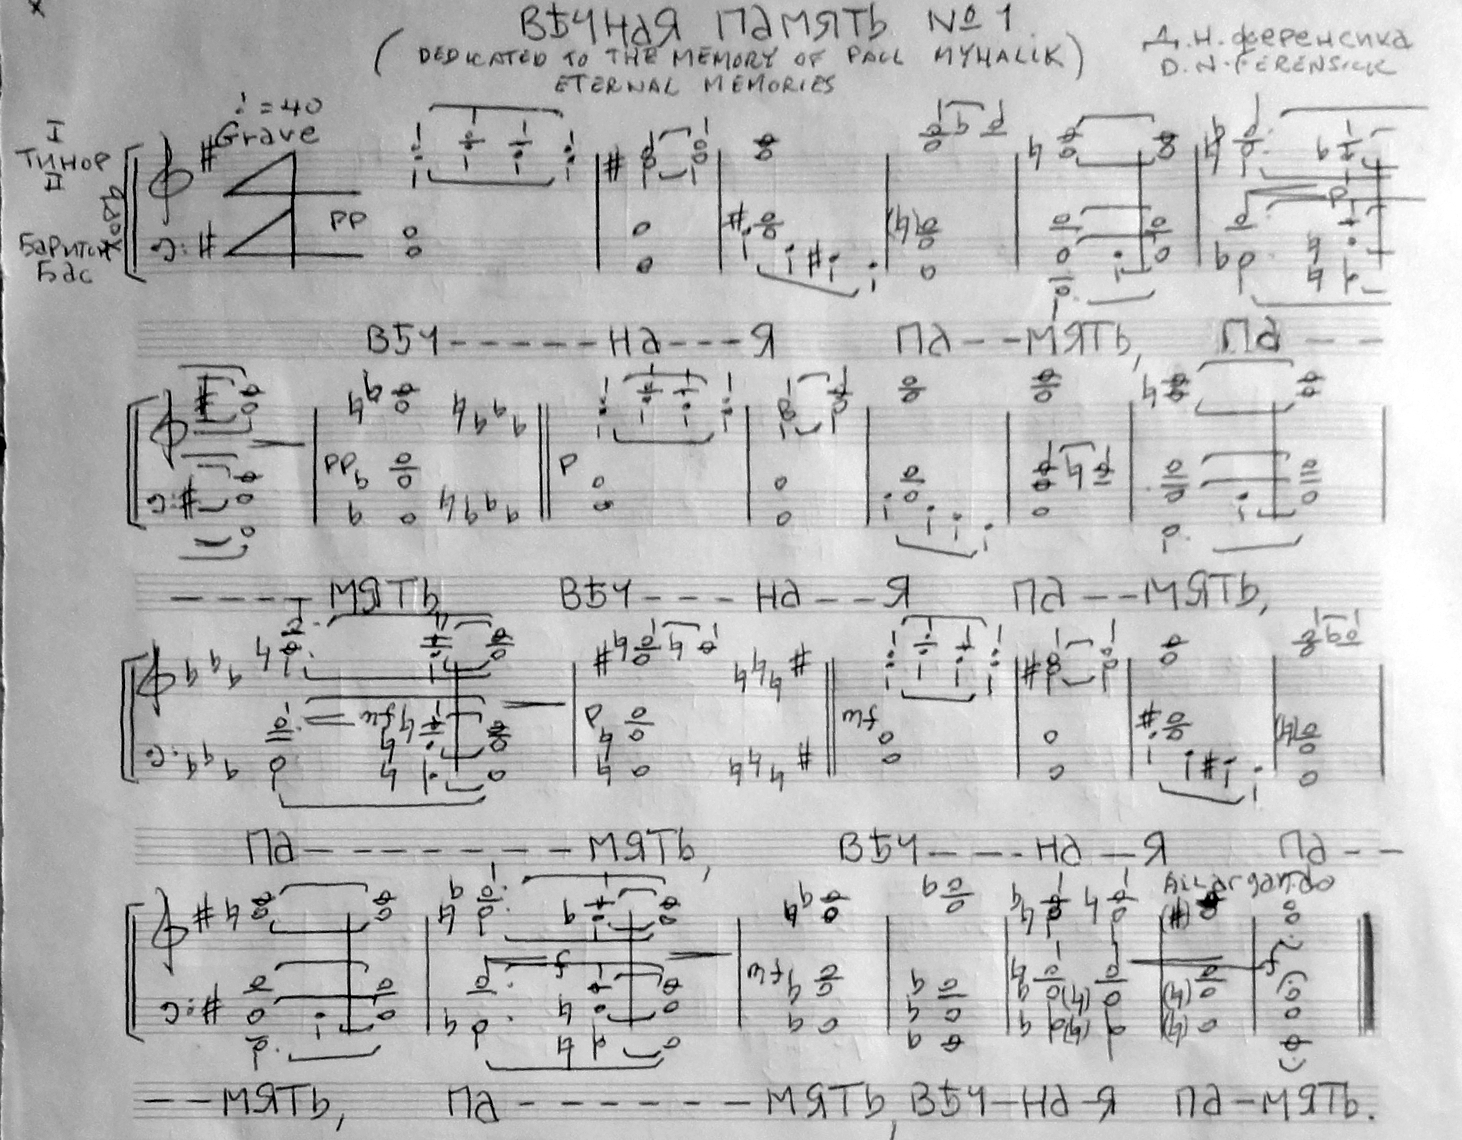 ВѢЧНАЯ ПАМЯТЬ № 1
(DEDICATED TO THE MEMORY OF PAUL MYHALIK)
ETERNAL MEMORIES
Д.Н.ФЕРЕНСИКА
D.N.FERENSICK
♩ = 40
Grave
I
ТИНОР
II
ХОРЪ
БАРИТОН
БАС
PP
P
ВѢЧ------НА---Я ПА--МЯТЬ, ПА---
PP P
----МЯТЬ, ВѢЧ---НА--Я ПА--МЯТЬ,
mf P mf
ПА-------МЯТЬ, ВѢЧ---НА-Я ПА--
Allargando
f mf f
--МЯТЬ, ПА------МЯТЬ, ВѢЧ-НА-Я ПА-МЯТЬ.